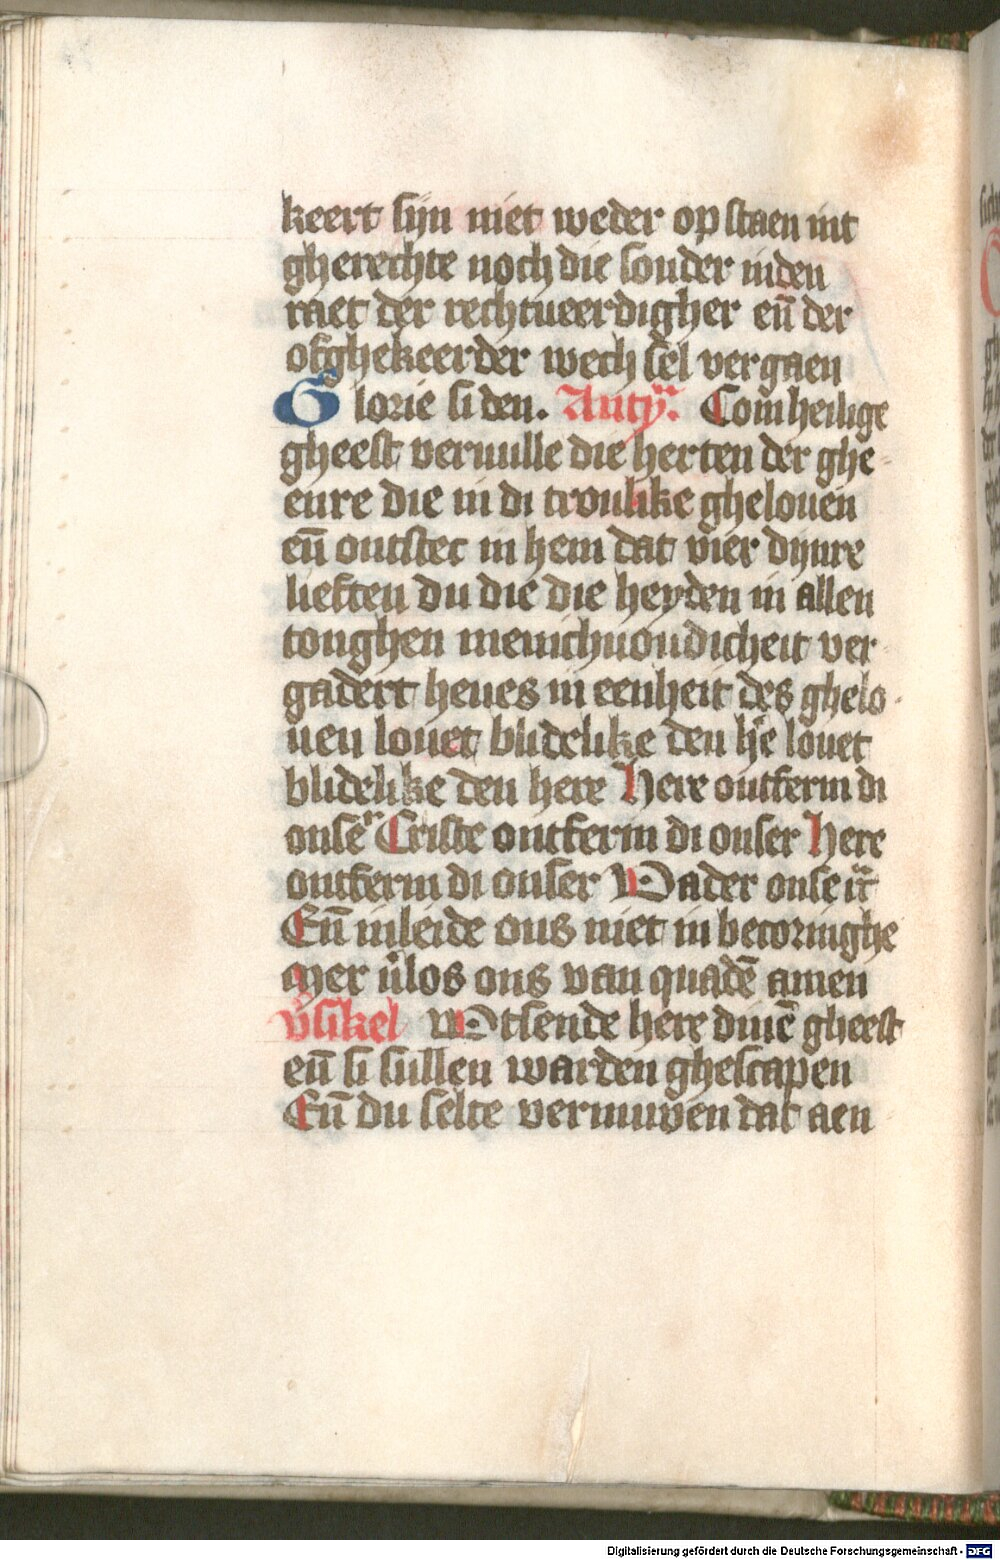 keert sijn niet weder op staen int
gherechte noch die sonder inden
raet der rechtueerdigher eñ der
ofghekeerder wech sel vergaen
Glorie si den. Anty. Com heilige
gheest veruulle die herten der ghe
eure die in di troulike ghelouen
eñ ontstec in hem dat vier dynre
lieften du die die heyden in allen
tonghen menichuondicheit ver
gadert heues in eenheit des ghelo
uen louet blidelike den hē louet
blidelike den here Here ontferm di
onsē Criste ontferm di onser Here
ontferm di onser Vader onse
Eñ inleide ons niet in becoringhe
mer v̄los ons van quadē amen
v̄sikel Wtsende here dinē gheest
eñ si sullen warden ghescapen
Eñ du selte vernuwen dat aen
Digitalisierung gefördert durch die Deutsche Forschungsgemeinschaft - DFG